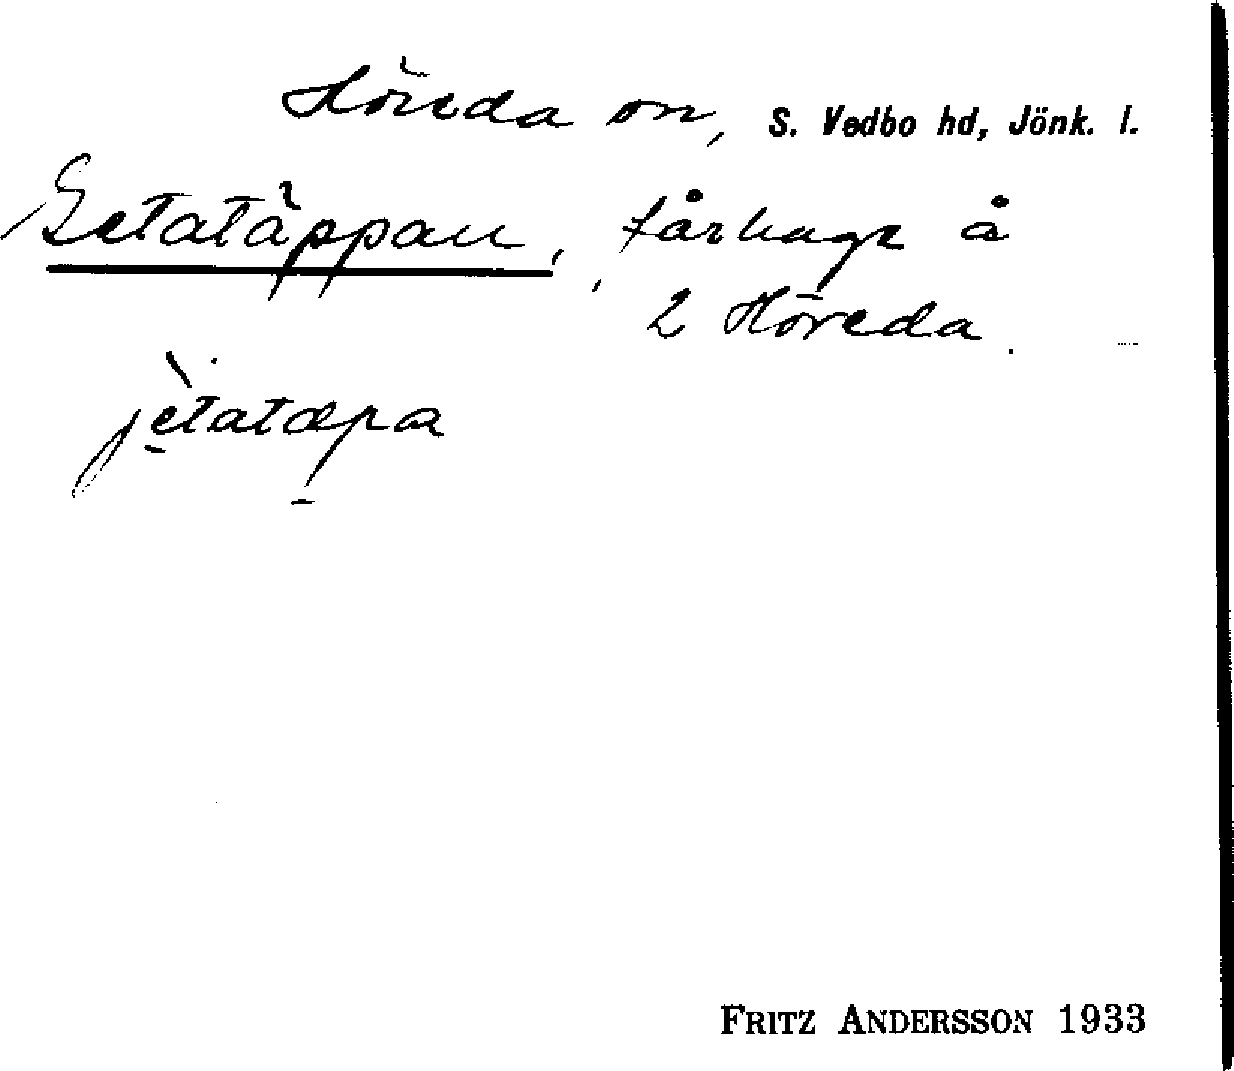 Höreda sn, S. Vedbo hd, Jönk. l.
Getatäppan, fårhage å
2 Höreda.
jètatæpa
FRITZ ANDERSSON 1933